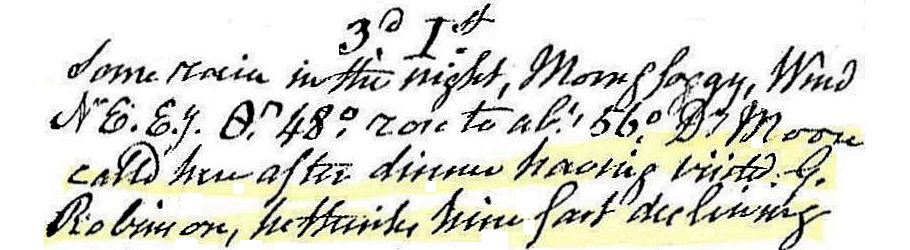 3d. 1st
Some rain in the night, Morng foggy, Wind
N.E. Ey. Θr. 48°. rose to abt. 56°. Dr Moore
calld here after dinner having visitd. G.
Robinson, he thinks him fast declining